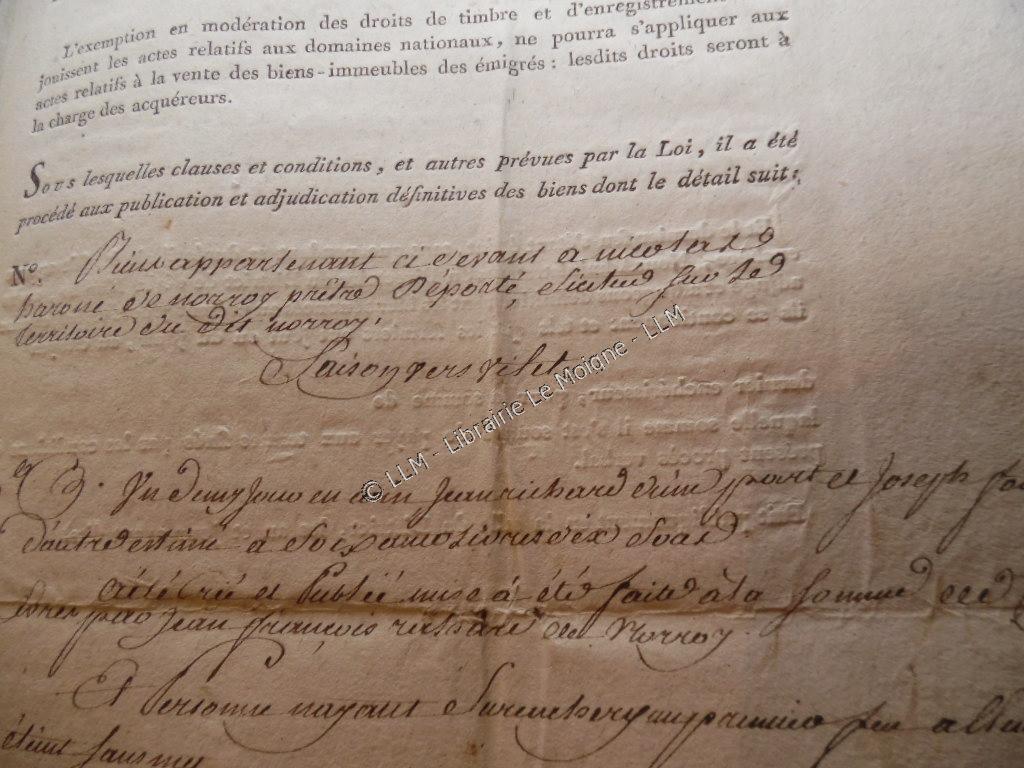 L'exemption en modération des droits de timbre et d'enregistrement
jouissent les actes relatifs aux domaines nationaux, ne pourra s'appliquer aux
actes relatifs à la vente des biens-immeubles des émigrés : lesdits droits seront à
la charge des acquéreurs.
Sous lesquelles clauses et conditions, et autres prévues par la Loi, il a été
procédé aux publication et adjudication définitives des biens dont le détail suit :
N.º Biens appartenant ci devant a nicolas
de norroy prêtre Déporté, scitué sur le
territoire du dit norroy.
Saison vers
3. Un demy jour en jean richard d'un part et Joseph
d'autre estimé à soixante livres dix sous
A été crié et Publié mise à été faite à la somme de
livres par jean françois richard de Norroy.
Et Personne nayant Surenchery un premier feu allumé
éteint sans
© LLM - Librairie Le Moigne - LLM